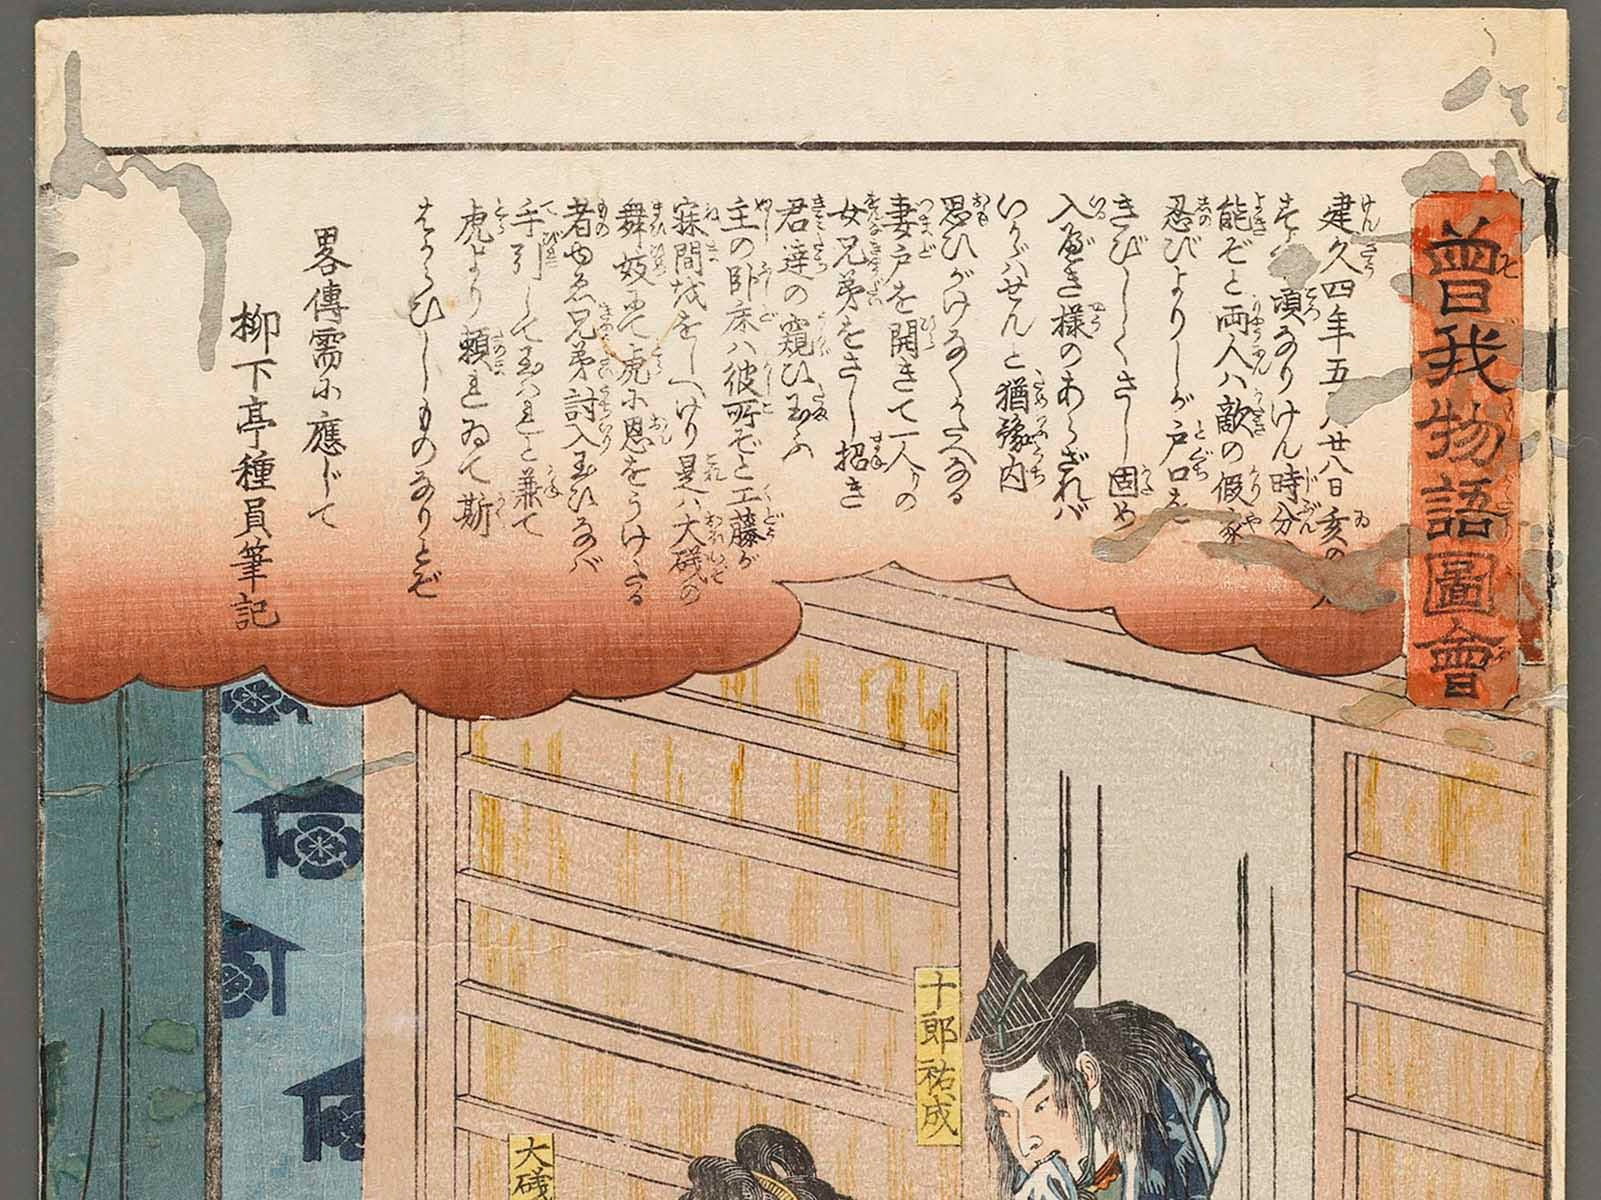 曾我物語圖會
建久四年五 廿八日亥の
頃なりけん時分
能ぞと両人ハ敵の假家
忍びよりしが戸口を
きびしくさし固め
入べき様のあらざれバ
いかゞハせんと猶豫内
思ひがけなくうへなる
妻戸を開きて一人の
女兄弟をさし招き
君達の窺ひ玉ふ
主の卧床ハ彼所ぞと工藤が
寐間をおしへけり是ハ大磯の
舞妓にて虎に恩をうけたる
者ゆゑ兄弟討入玉ひなバ
手引して玉ハれと兼て
虎より頼まれゐて斯
はからひしものなりとぞ
畧傳需に應じて
柳下亭種員筆記
十郎祐成
大磯